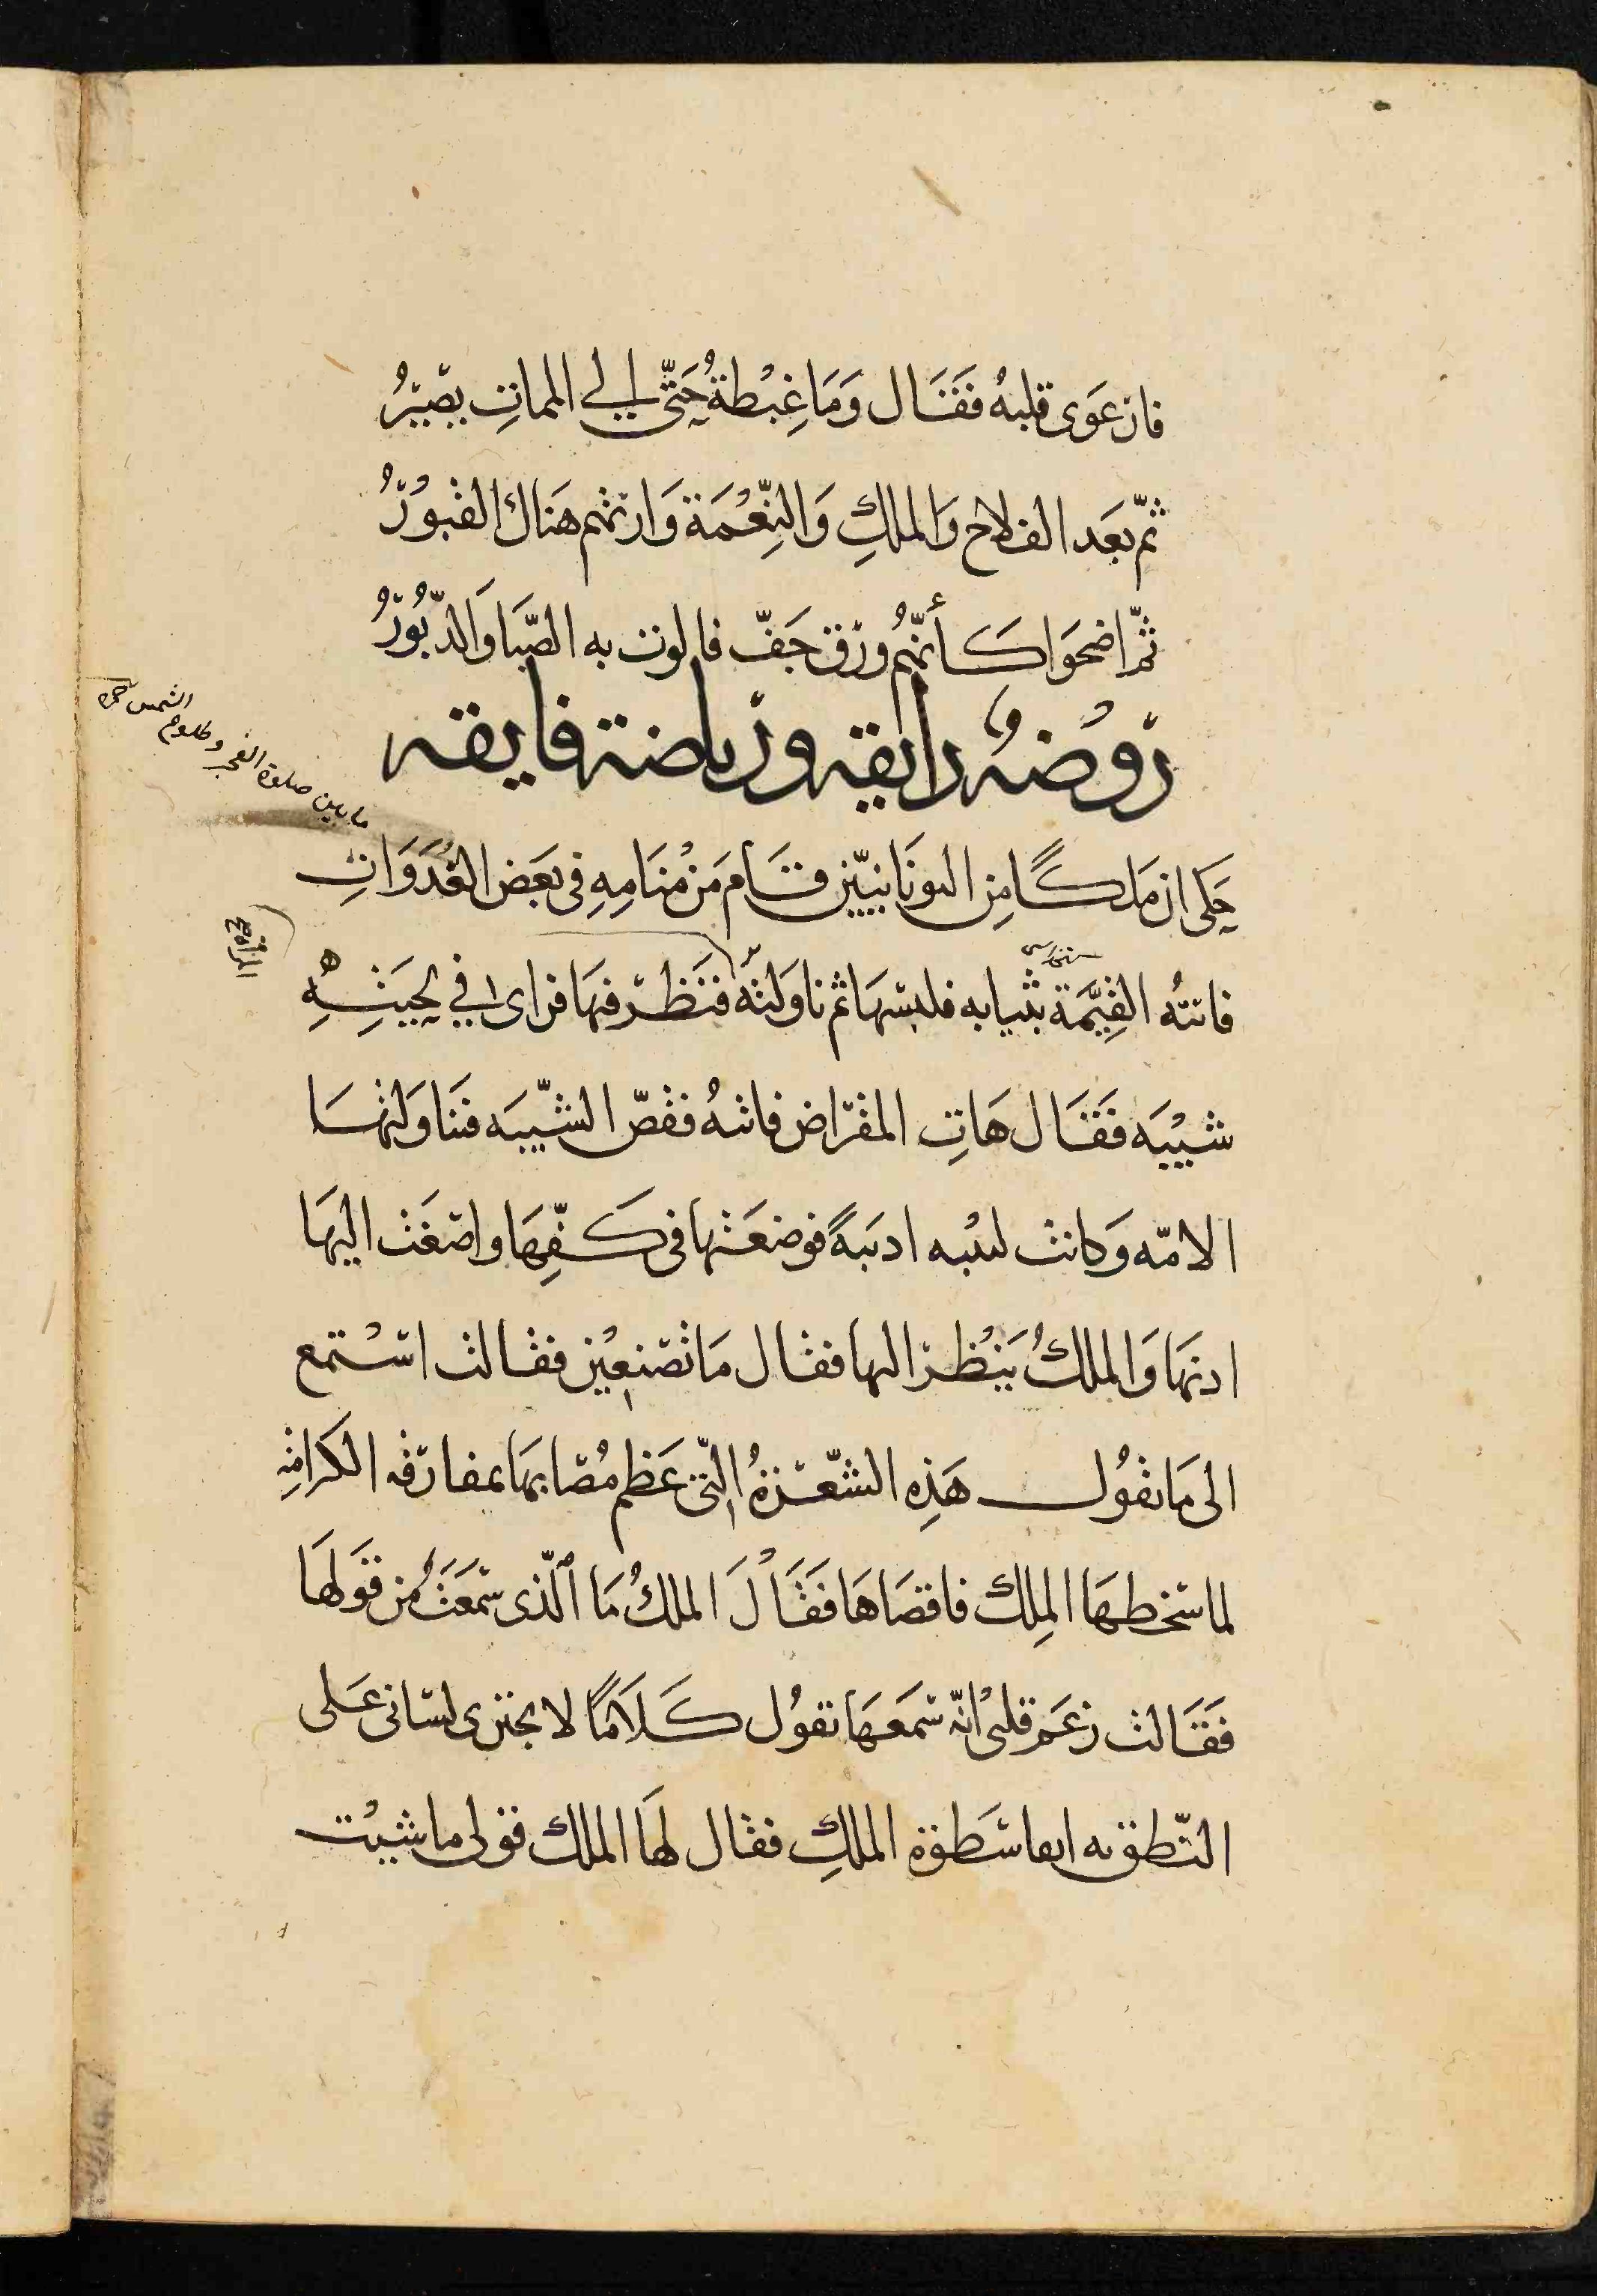 فارعوى قلبه فَقَال وَمَا غِبْطَةُ حَيّ الى المماتِ يصيرُ
ثمّ بَعَد الفلاح وَالملكِ وَالنِّعْمَة وَارتهُم هَناك القبُورُ
ثمّ اضحَوا كَأنّهُم ورَق جَفّ فالوت به الصَّبَا وَالدّبُورُ
رَوْضةُ رايقه ورياضة فايقه
حَكى ان مَلكًا مِن اليونَانيّين قَام مَن مْنَامِهِ في بَعَض الغُدَوَاتِ
فاتتهُ القيِّمَة بثيابه فلبسَهَا ثم ناوَلتهُ فنَظرَ فيهَا فرَاى في لِحيَتِهِ
شيْبَه فَقَال هَاتِ المقرَاض فاتتهُ فقصّ الشّيبَه فنَاوَلتهَا
الامَه وَكانت لبيبه اديَبةً فوضعَتها في كَفّهَا واصَغَت اليهَا
اذنهَا وَالملكُ يَنْظرَ اليها فقال مَا تصَنعِيْن فقالت استْمع
الى مَا تقُول هَذِه الشّعْرَةُ التّي عَظم مُصَابهَا بمفارَقه الكرامَهِ
لما سَخطهَا المِلك فاقصَاهَا فَقَالَ الملكُ مَا الّذي سَمعَتُ مِن قَولهَا
فَقَالت زعَم قلبي انّه سَمعَهَا تقوُل كَلَامًا لا يجتري لسَاني عَلى
النّطق به اتقا سَطوَة الملكِ فقال لهَا الملك قولي ما شيْت
ما بين صلوة الفجر وطلوع
الشمس